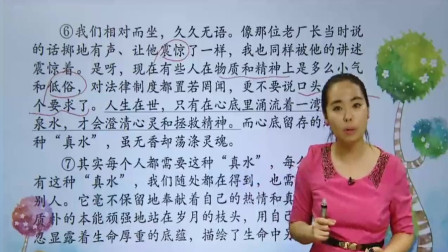 ⑥我们相对而坐，久久无语。像那位老厂长当时说
的话掷地有声、让他震惊了一样，我也同样被他的讲述
震惊着。是呀，现在有些人在物质和精神上是多么小气
和低俗，对法律制度都置若罔闻，更不要说口头
个要求了。人生在世，只有在心底里涌流着一湾
泉水，才会澄清心灵和拯救精神。而心底留存的
种“真水”，虽无香却荡涤灵魂。
⑦其实每个人都需要这种“真水”，每个
有这种“真水”，我们随处都在得到，也需
别人。它毫不保留地奉献着自己的热情和真
质朴的本能顽强地站在岁月的枝头，用自己
息显露着生命厚重的底蕴，描绘了生命中